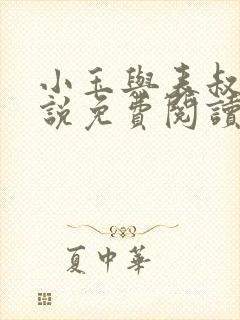 小玉與表叔
說免費閱讀
夏中華